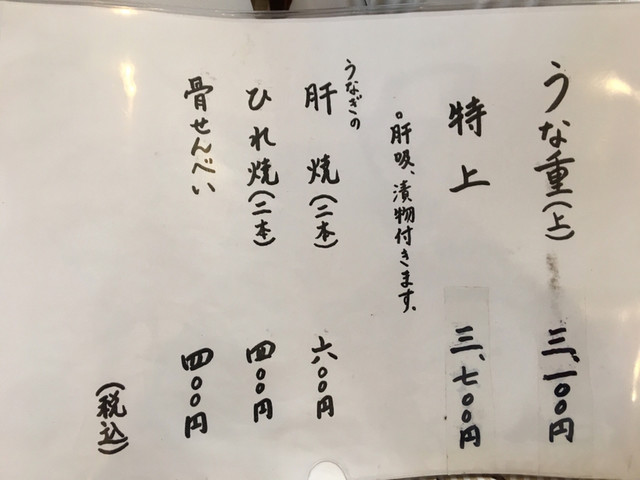 うな重(上) 三、一〇〇円
特上 三、七〇〇円
。肝吸、漬物付きます。
うなぎの
肝焼(二本) 六〇〇円
ひれ焼(二本) 四〇〇円
骨せんべい 四〇〇円
(税込)